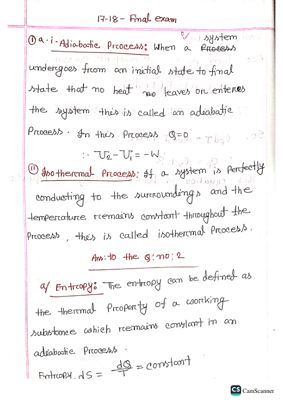 17-18 - Final exam
system
① a. i. Adiabatic Process: When a Process
undergoes from an initial state to final
state that no heat no leaves or enteres
the system this is called an adiabatic
Process. In this Process Q=0
∴ U₂-U₁ = -W
⑪ Isothermal Process: If a system is Perfectly
conducting to the surroundings and the
temperature remains constant throughout the
Process, this is called isothermal Process.
Ans: to the Q: no: 2
a/ Entropy: The entropy can be defined as
the thermal Property of a working
substance which remains constant in an
adiabatic Process.
Entropy, dS = dQ/T = constant
CS CamScanner